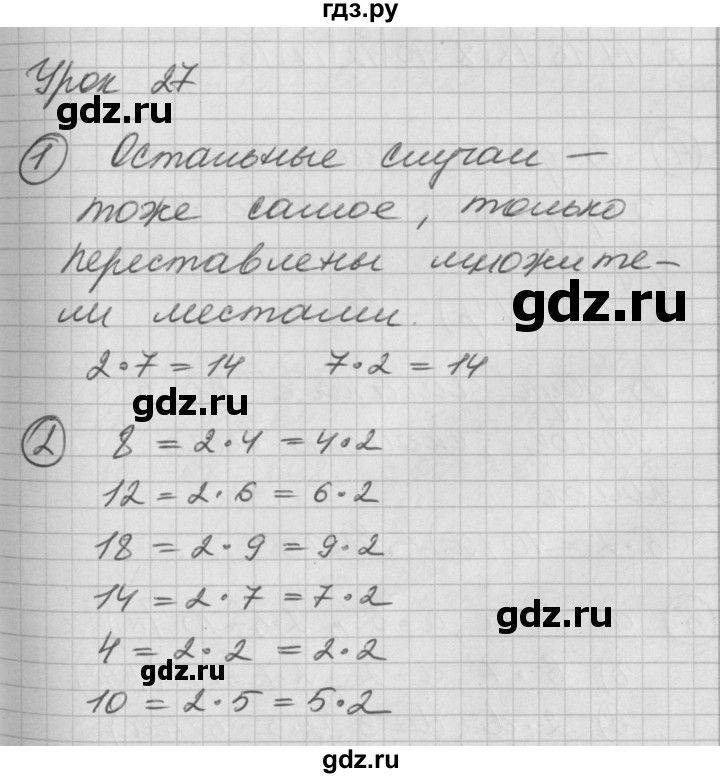 гдз.ру
Урок 27
gdz.ru
1 Остальные случаи —
тоже самое, только
переставлены множите-
ли местами.
gdz.ru
2·7 = 14 7·2 = 14
gdz.ru
2 8 = 2·4 = 4·2
12 = 2·6 = 6·2
18 = 2·9 = 9·2
14 = 2·7 = 7·2
gdz.ru
4 = 2·2 = 2·2
gdz.ru
10 = 2·5 = 5·2
gdz.ru